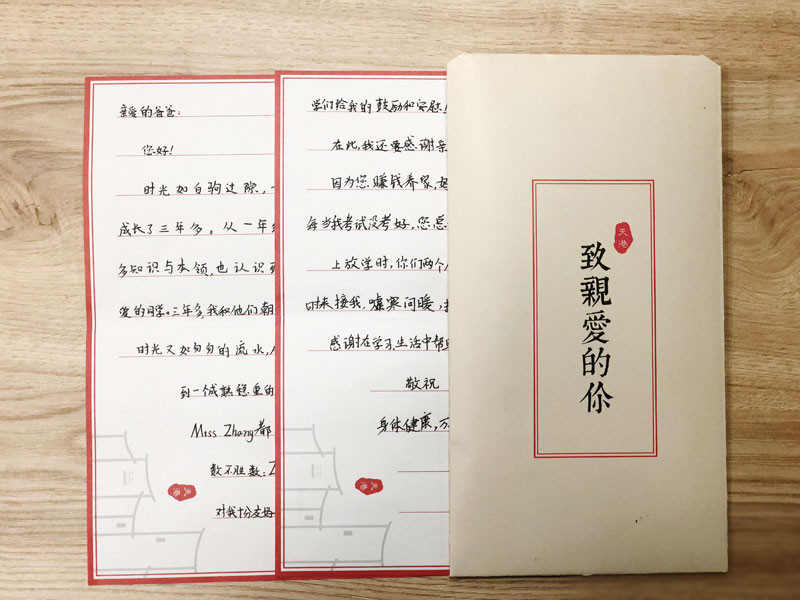 亲爱的爸爸:
您好!
时光如白驹过隙,
成长了三年多。从一年
多知识与本领,也认识
爱的同学。三年多,我和他们朝
时光又如匆匆的流水,
到一个成熟稳重的
Miss Zhang都
数不胜数:
天港
对我十分支持
学们给我的鼓励和安慰!
在此,我还要感谢亲
因为您赚钱养家,
每当我考试没考好,您总
上放学时,你们两个
时来接我,嘘寒问暖,
感谢在学习、生活中帮
敬祝
身体健康,万
天港
天港
致親愛的你